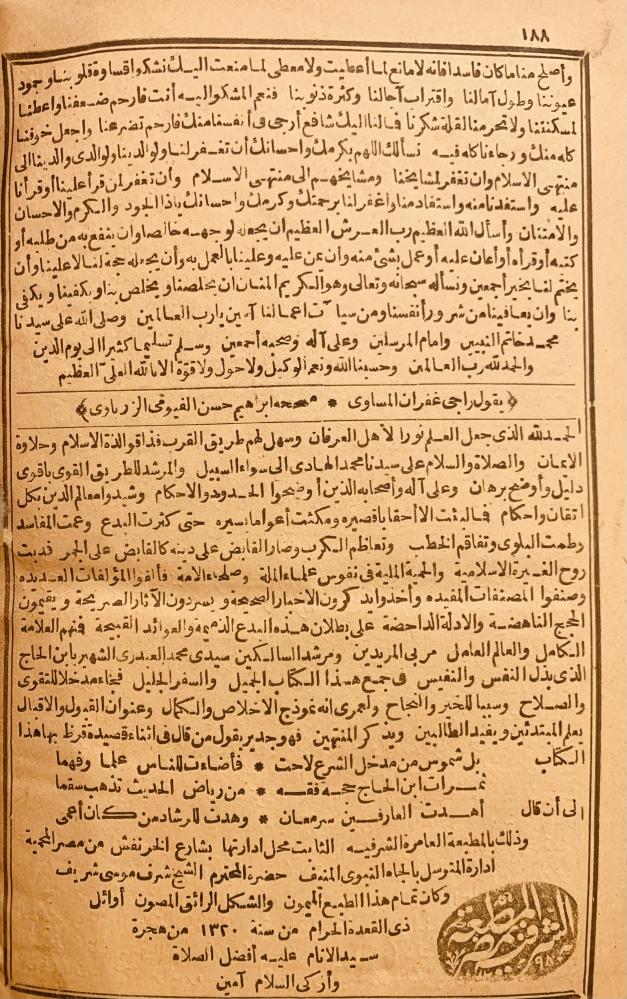 ١٨٨
وأصلح مناما كان فاسدا فانه لا مانع لما أعطيت ولا معطى لما منعت اليك نشكو اقساوة قلوبنا وجود
عيوننا وطول آمالنا واقتراب آجالنا وكثرة ذنوبنا فنعم المشكو اليه أنت فارحم ضعفنا واعطنا
لمسكنتنا ولا تحرمنا لقلة شكرنا فما لنا اليك شافع أرجى فى أنفسنا منك فارحم تضرعنا واجعل خوفنا
كله منك ورجاءنا كله فيك نسألك اللهم بكرمك واحسانك أن تغفر لنا ولوالدينا ولوالدى والدينا الى
منتهى الاسلام وان تغفر لمشايخنا ومشايخهم الى منتهى الاسلام وأن تغفر لمن قرأ علينا أو قرأنا
عليه واستفدنا منه واستفاد منا واغفر لنا برحمتك وكرمك واحسانك ياذا الجود والكرم والاحسان
والامتنان وأسأل الله العظيم رب العرش العظيم أن يجعله لوجهه خالصا وان ينفع به من طلبه أو
كتبه أو قرأه أو أعان عليه أو عمل بشئ منه وأن يمن عليه وعلينا بالعمل به وأن يجعله حجة لنا لا علينا وأن
يختم لنا بخير أجمعين ونسأله سبحانه وتعالى وهو الكريم المنان ان يخلصنا ويخلص بنا ويكفينا ويكفى
بنا وان يعافينا من شرور أنفسنا ومن سيا ت اعمالنا آمين يارب العالمين وصلى الله على سيدنا
محمد خاتم النبيين وامام المرسلين وعلى آله وصحبه أجمعين وسلم تسليما كثيرا الى يوم الدين
والحمد لله رب العالمين وحسبنا الله ونعم الوكيل ولا حول ولا قوة الا بالله العلى العظيم
﴿يقول راجى غفران المساوى * مصححه ابراهيم حسن الفيومى الزرباوى﴾
الحمد لله الذى جعل العلم نورا لأهل العرفان وسهل لهم طريق القرب فذاقوا لذة الاسلام وحلاوة
الايمان والصلاة والسلام على سيدنا محمد الهادى الى سواء السبيل والمرشد للطريق القوى باقوى
دليل وأوضح برهان وعلى آله وأصحابه الذين أوضحوا الحدود والاحكام وشيدوا معالم الدين بكل
اتقان واحكام فما لبثت الا أحقابا قصيره ومكثت أعواما يسيره حتى كثرت البدع وعمت المفاسد
وطمت البلوى وتفاقم الخطب وتعاظم الكرب وصار القابض على دينه كالقابض على الجمر فدبت
روح الغيرة الاسلامية والحمية الملية فى نفوس علماء الملة وصلحاء الامة فألفوا المؤلفات العديده
وصنفوا المصنفات المفيده وأخذوا يذكرون الاخبار الصحيحة ويسردون الآثار الصريحة ويقيمون
الحجج الناهضة والادلة الداحضة على بطلان هذه البدع الذميمة والعوائد القبيحة فمنهم العلامة
الكامل والعالم العامل مربى المريدين ومرشد السالكين سيدى محمد العبدرى الشهير بابن الحاج
الذى بذل النفس والنفيس فى جمع هذا الكتاب الجميل والسفر الجليل فجاء مدخلا للتقوى
والصلاح وسببا للخير والنجاح ولعمرى انه نموذج الاخلاص والكمال وعنوان القبول والاقبال
يعلم المبتدئين ويفيد الطالبين ويذكر المنتهين فهو جدير بقول من قال فى اثناء قصيدة قرظ بها هذا
الكتاب بل شموس من مدخل الشرع لاحت * فأضاءت للناس علما وفهما
ثمرات ابن الحاج حجة فقه * من رياض الحديث تذهب سقما
الى أن قال أهدت العارفين سر معان * وهدت للرشاد من كان أعمى
وذلك بالمطبعة العامرة الشرفيه الثابت محل ادارتها بشارع الخرنفش من مصر المحمية
ادارة المتوسل بالجاه النبوى المنيف حضرة المحترم الشيخ شرف موسى شريف
وكان تمام هذا الطبع الميمون والشكل الرائق المصون أوائل
ذى القعدة الحرام من سنة ١٣٢٠ من هجرة
سيد الانام عليه أفضل الصلاة
وأزكى السلام آمين